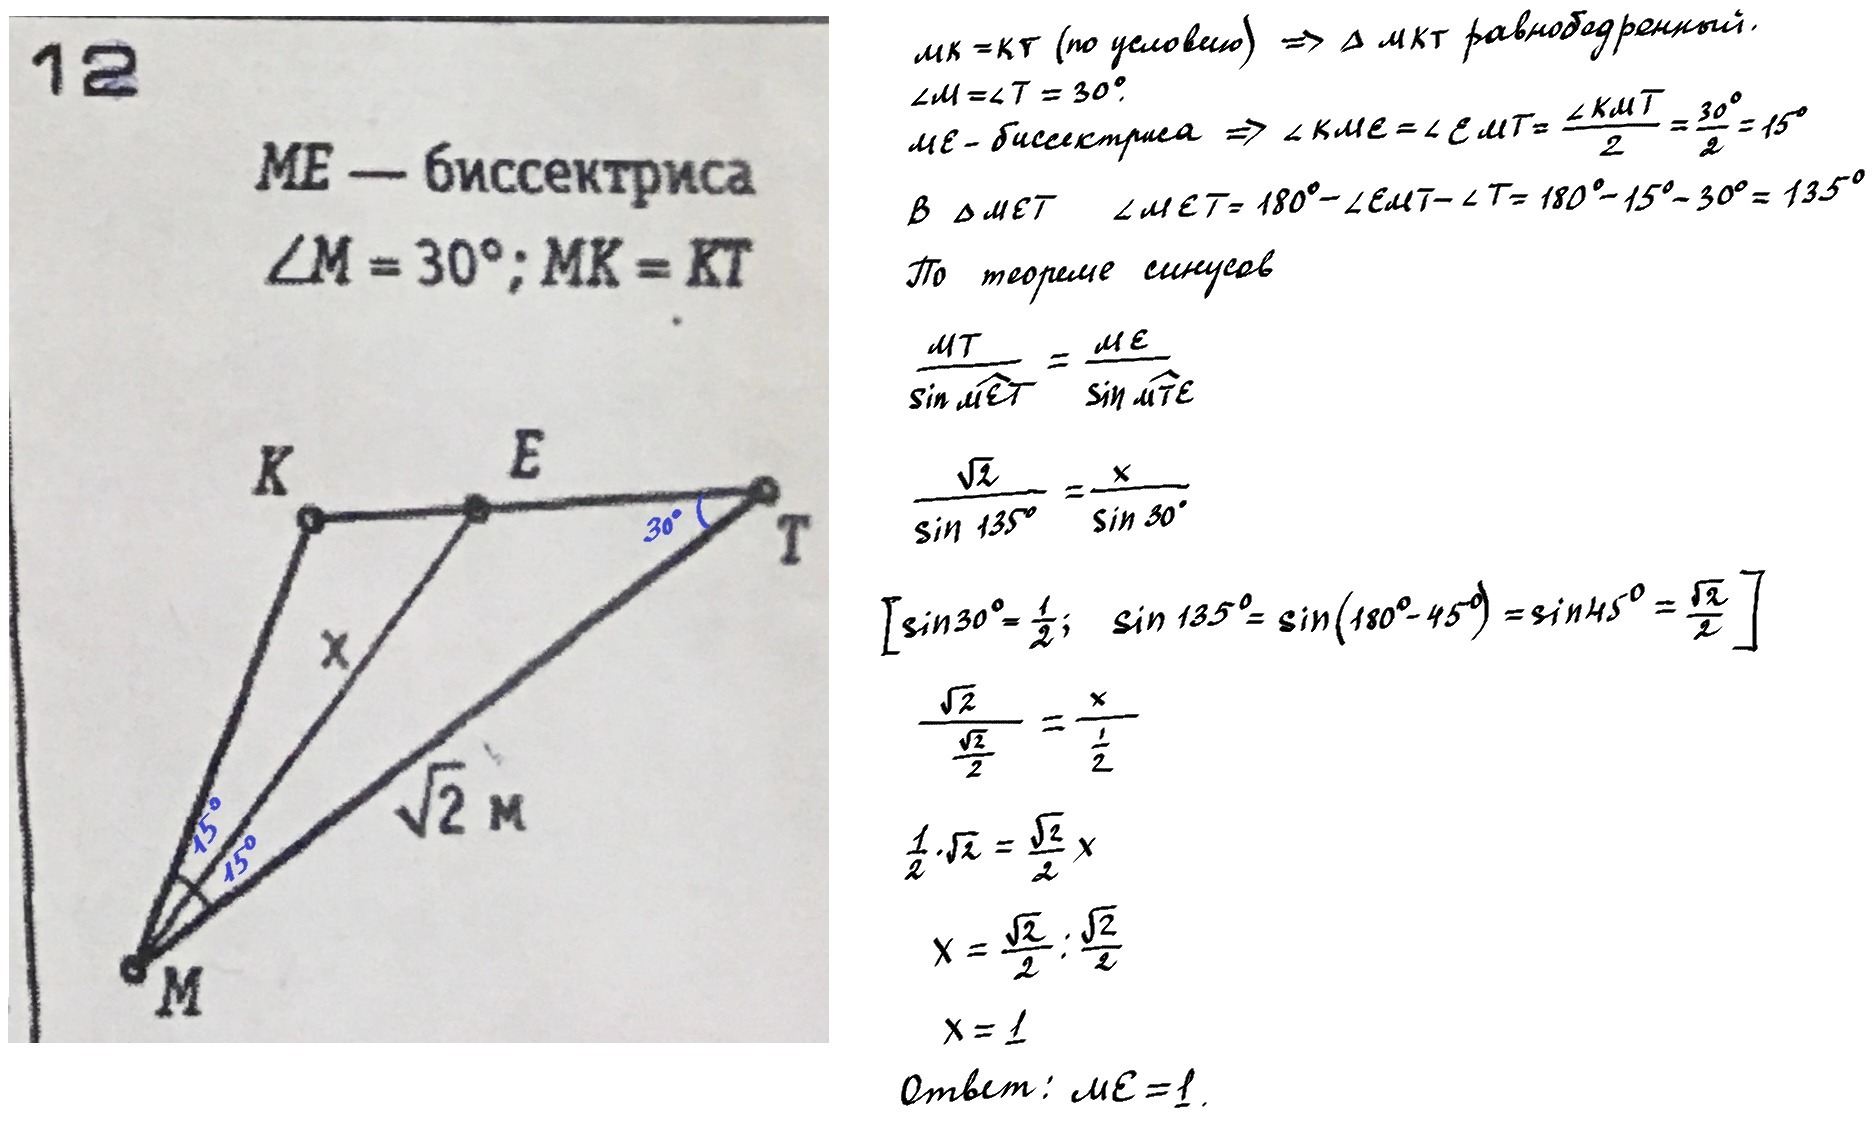 12
ME — биссектриса
∠M = 30°; MK = KT
K
E
T
30°
x
√2 м
15°
15°
M
MK = KT (по условию) => △ MKT равнобедренный.
∠M = ∠T = 30°.
ME - биссектриса => ∠KME = ∠EMT = ∠KMT/2 = 30°/2 = 15°
В △MET ∠MET = 180° - ∠EMT - ∠T = 180° - 15° - 30° = 135°
По теореме синусов
MT/sin MET = ME/sin MTE
√2/sin 135° = x/sin 30°
[sin30° = 1/2; sin 135° = sin(180° - 45°) = sin45° = √2/2]
√2/(√2/2) = x/(1/2)
1/2 · √2 = √2/2 x
x = √2/2 : √2/2
x = 1
Ответ: ME = 1.